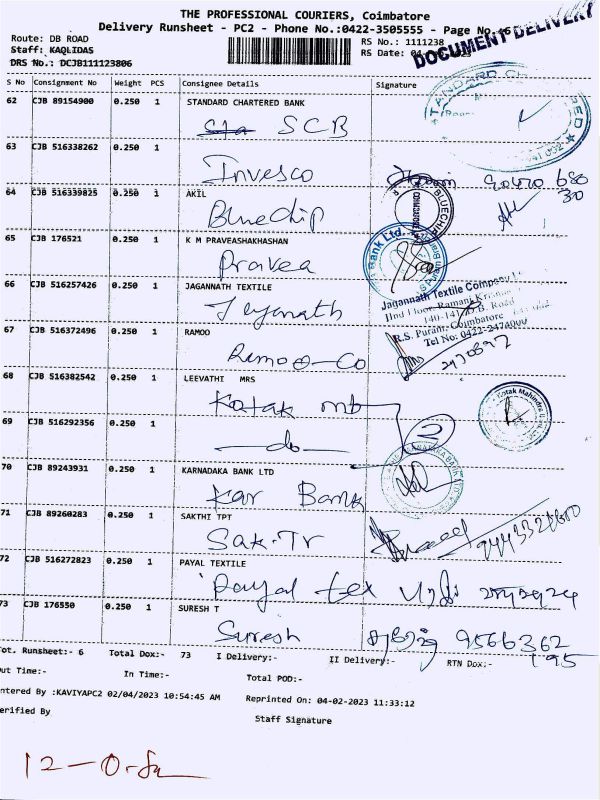 THE PROFESSIONAL COURIERS, Coimbatore
Delivery Runsheet - PC2 - Phone No.:0422-3505555 - Page No.
DOCUMENT DELIVERY
Route: DB ROAD
RS No.: 1111238
Staff: KAQLIDAS
RS Date:
DRS No.: DCJB111123806
S No Consignment No Weight PCS Consignee Details Signature
62 CJB 89154900 0.250 1 STANDARD CHARTERED BANK
SCB
63 CJB 516338262 0.250 1
Invesco
64 CJB 516339825 0.250 1 AKIL
Bluechip
65 CJB 176521 0.250 1 K M PRAVEASHAKHASHAN
Pravea
66 CJB 516257426 0.250 1 JAGANNATH TEXTILE
Jeyanath
Jagannath Textile Company
R.S. Puram, Coimbatore
Tel No: 0422-2474000
67 CJB 516372496 0.250 1 RAMOO
Ramoo-Co
68 CJB 516382542 0.250 1 LEEVATHI MRS
Kotak mb
Kotak Mahindra
69 CJB 516292356 0.250 1
do
2
70 CJB 89243931 0.250 1 KARNADAKA BANK LTD
Kar Bank
71 CJB 89260283 0.250 1 SAKTHI TPT
Sak-Tr
72 CJB 516272823 0.250 1 PAYAL TEXTILE
Payal tex
73 CJB 176550 0.250 1 SURESH T
Suresh 9566362
195
Tot. Runsheet:- 6 Total Dox:- 73 I Delivery:- II Delivery:- RTN Dox:-
Out Time:- In Time:- Total POD:-
Entered By :KAVIYAPC2 02/04/2023 10:54:45 AM Reprinted On: 04-02-2023 11:33:12
Verified By Staff Signature